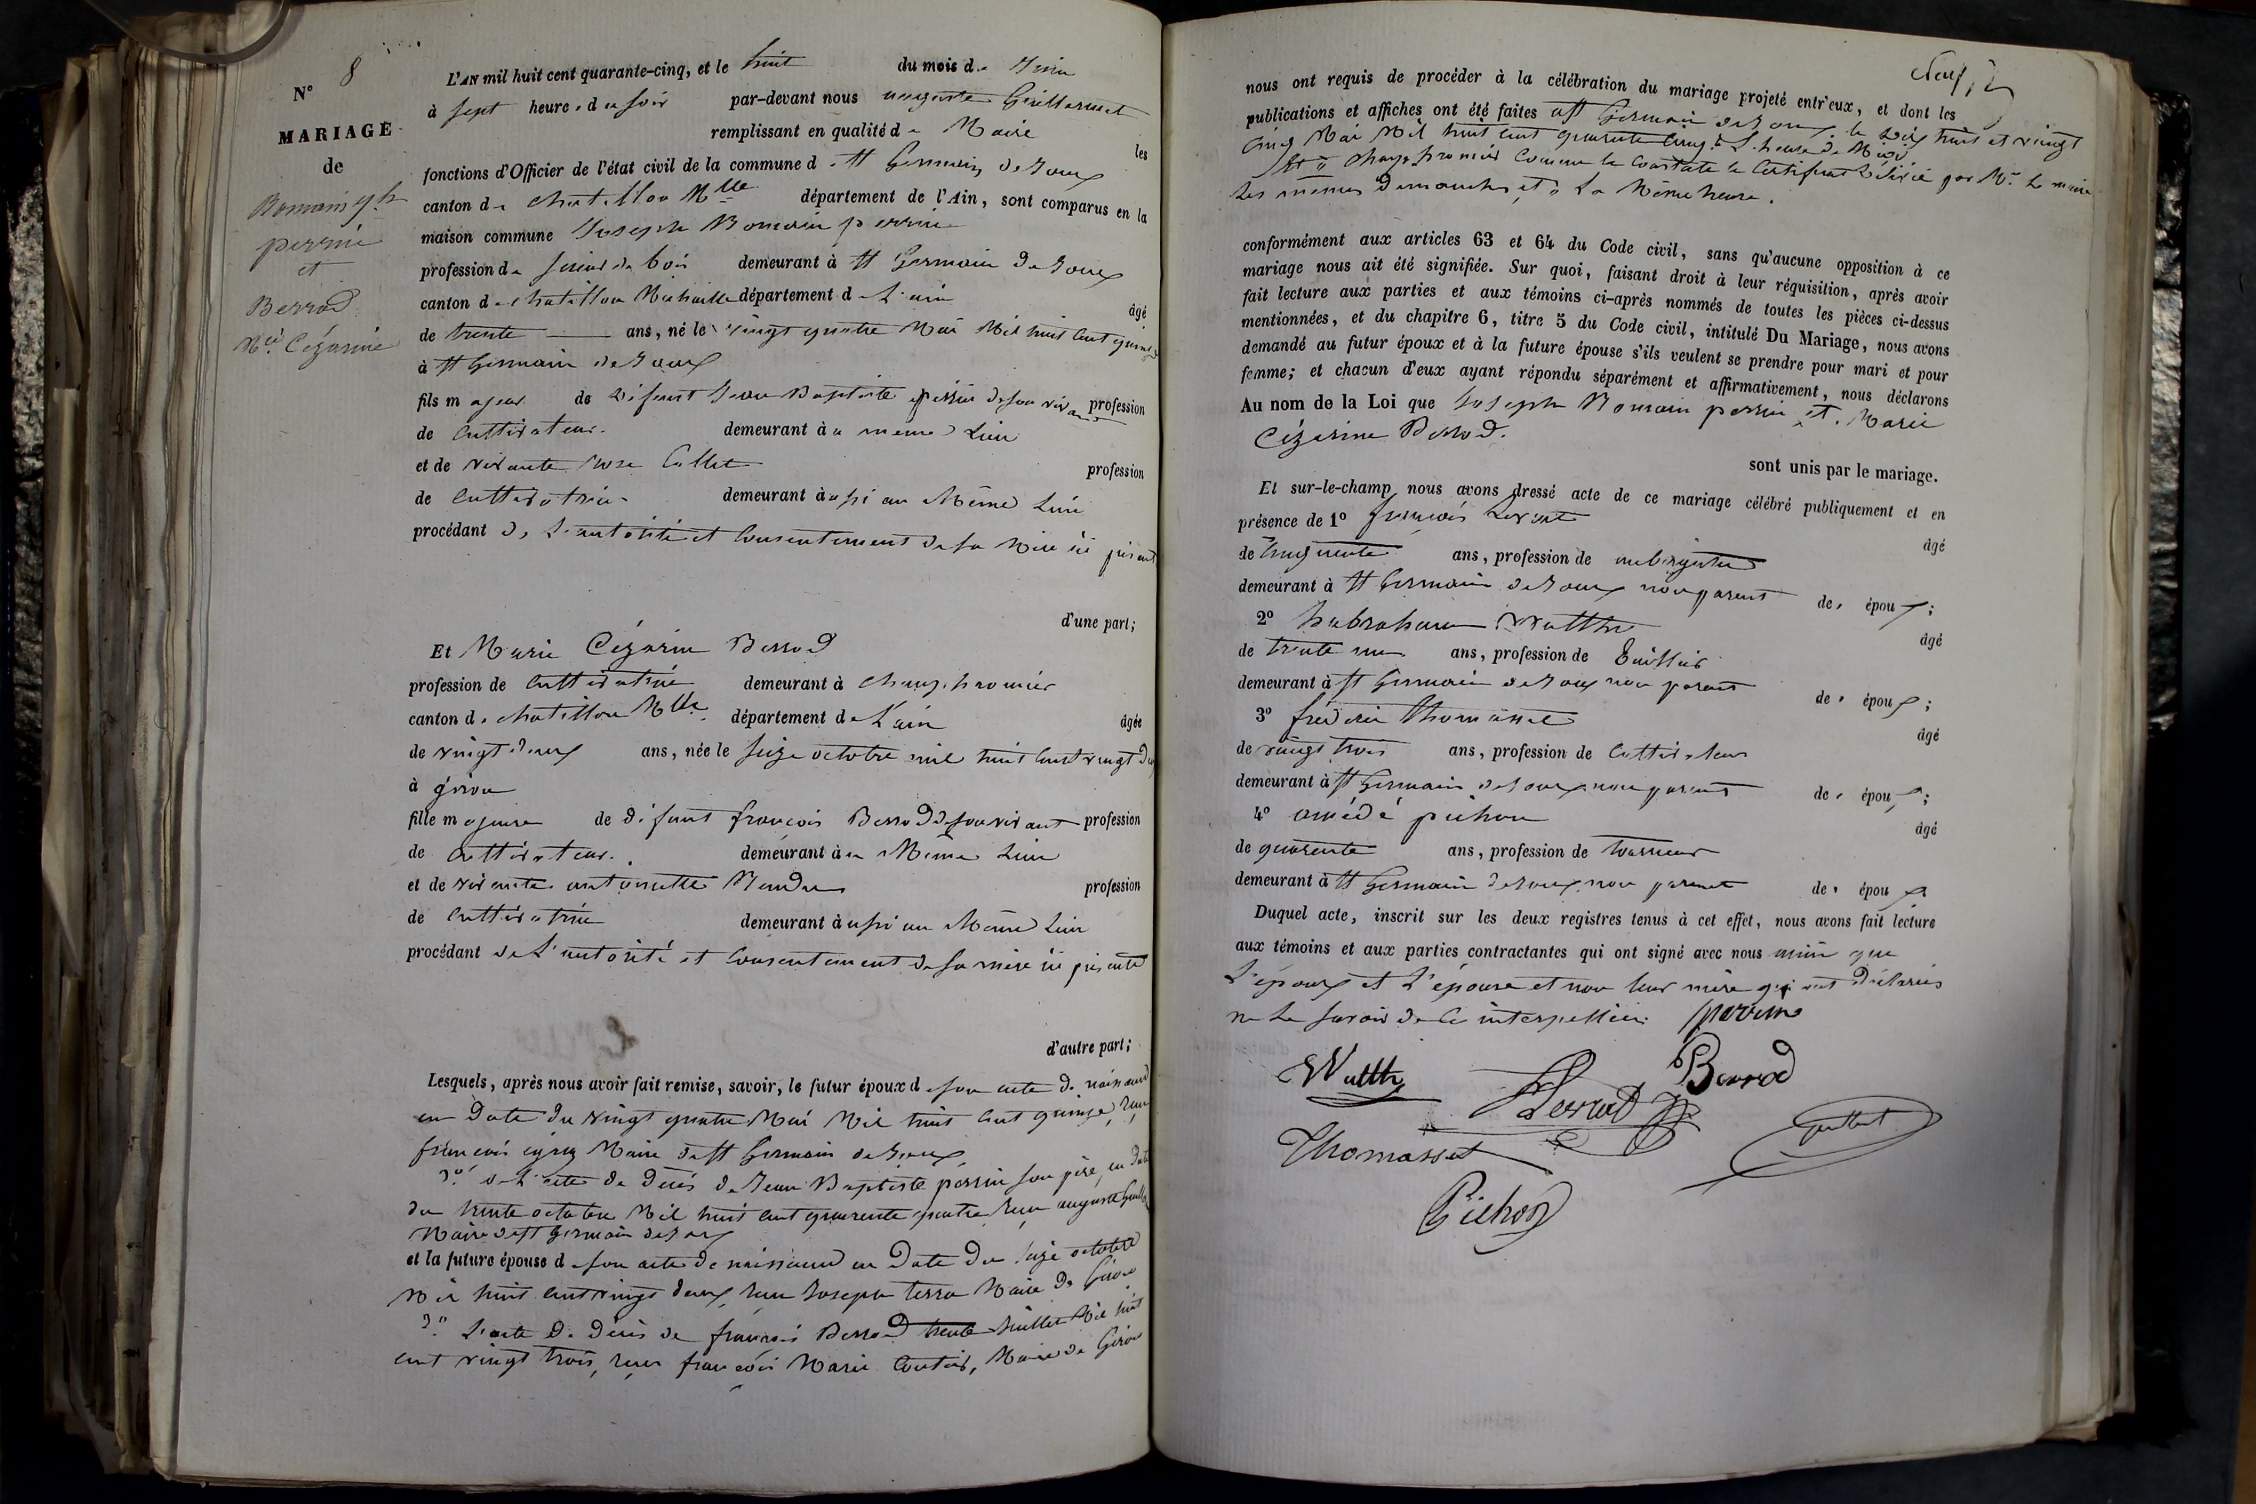 N° 8
MARIAGE
de
Romain Jh
perrin
et
Berrod
Mie Cézarine
L'AN mil huit cent quarante-cinq, et le huit du mois de Juin
à sept heures du soir par-devant nous auguste Guillermet
remplissant en qualité de Maire les
fonctions d'Officier de l'état civil de la commune de St Germain de Joux
canton de Chatillon Mlle département de l'Ain, sont comparus en la
maison commune Joseph Romain perrin
profession de scieur de bois demeurant à St Germain de Joux
canton de Chatillon Michaille département de L'ain âgé
de trente ans, né le vingt quatre Mai Mil huit Cent quinze
à St Germain de Joux
fils majeur de défunt Jean Baptiste perrin de son vivant profession
de Cultivateur demeurant à u meme Lieu
et de vivante Rose Collet profession
de Cultivatrice demeurant à ussi au Même Lieu
procédant de L'autorité et Consentement de sa Mère ici présente
d'une part;
Et Marie Cézarine Berrod
profession de Cultivatrice demeurant à Champfromier
canton de Chatillon Mlle département de L'ain âgée
de vingt deux ans, née le seize octobre mil huit Cent vingt deux
à giron
fille majeure de défunt françois Berrod de son vivant profession
de Cultivateur demeurant à u Même Lieu
et de vivante antoinette profession
de Cultivatrice demeurant à ussi au Même Lieu
procédant de L'autorité et Consentement de sa mère ici présente
d'autre part;
Lesquels, après nous avoir fait remise, savoir, le futur époux de son acte de naissance
en Date du vingt quatre Mai Mil huit Cent quinze, reçu
françois Maire de St Germain de Joux
2° de L'acte de Décès de Jean Baptiste perrin son père, en Date
du trente octobre Mil huit Cent quarente quatre, reçu auguste
Maire de St Germain de Joux
et la future épouse de son acte de naissance en Date du seize octobre
Mil huit Cent vingt deux, reçu Joseph Maire de Giron
2° L'acte de Décès de françois Berrod trente Juillet Mil huit
Cent vingt trois, reçu françois Marie Maire de Giron
nous ont requis de procéder à la célébration du mariage projeté entr'eux, et dont les
publications et affiches ont été faites à St Germain de Joux, le Dix huit et vingt
Cinq Mai Mil huit Cent quarente Cinq à L'heure de Midi
Et à Champfromier Comme le Constate le Certificat Délivré par Mr Le maire
Les mêmes Dimanches et à La Même heure.
conformément aux articles 63 et 64 du Code civil, sans qu'aucune opposition à ce
mariage nous ait été signifiée. Sur quoi, faisant droit à leur réquisition, après avoir
fait lecture aux parties et aux témoins ci-après nommés de toutes les pièces ci-dessus
mentionnées, et du chapitre 6, titre 5 du Code civil, intitulé Du Mariage, nous avons
demandé au futur époux et à la future épouse s'ils veulent se prendre pour mari et pour
femme; et chacun d'eux ayant répondu séparément et affirmativement, nous déclarons
Au nom de la Loi que Joseph Romain perrin et Marie
Cézarine Berrod.
sont unis par le mariage.
Et sur-le-champ nous avons dressé acte de ce mariage célébré publiquement et en
présence de 1° françois âgé
de Cinquente ans, profession de aubergiste
demeurant à St Germain de Joux non parent des époux;
2° habraham Wultth âgé
de trente ans, profession de Tailleur
demeurant à St Germain de Joux non parent des époux;
3° fréderic Thomasset âgé
de vingt trois ans, profession de Cultivateur
demeurant à St Germain de Joux non parent des époux;
4° amédé pichon âgé
de quarente ans, profession de tourneur
demeurant à St Germain de Joux non parent des époux
Duquel acte, inscrit sur les deux registres tenus à cet effet, nous avons fait lecture
aux témoins et aux parties contractantes qui ont signé avec nous ainsi que
L'époux et L'épouse et non leur mère qui ont Déclarées
ne Le savoir de Ce interpellées perrin
Wultth
Berrod
Thomasset
Pichon